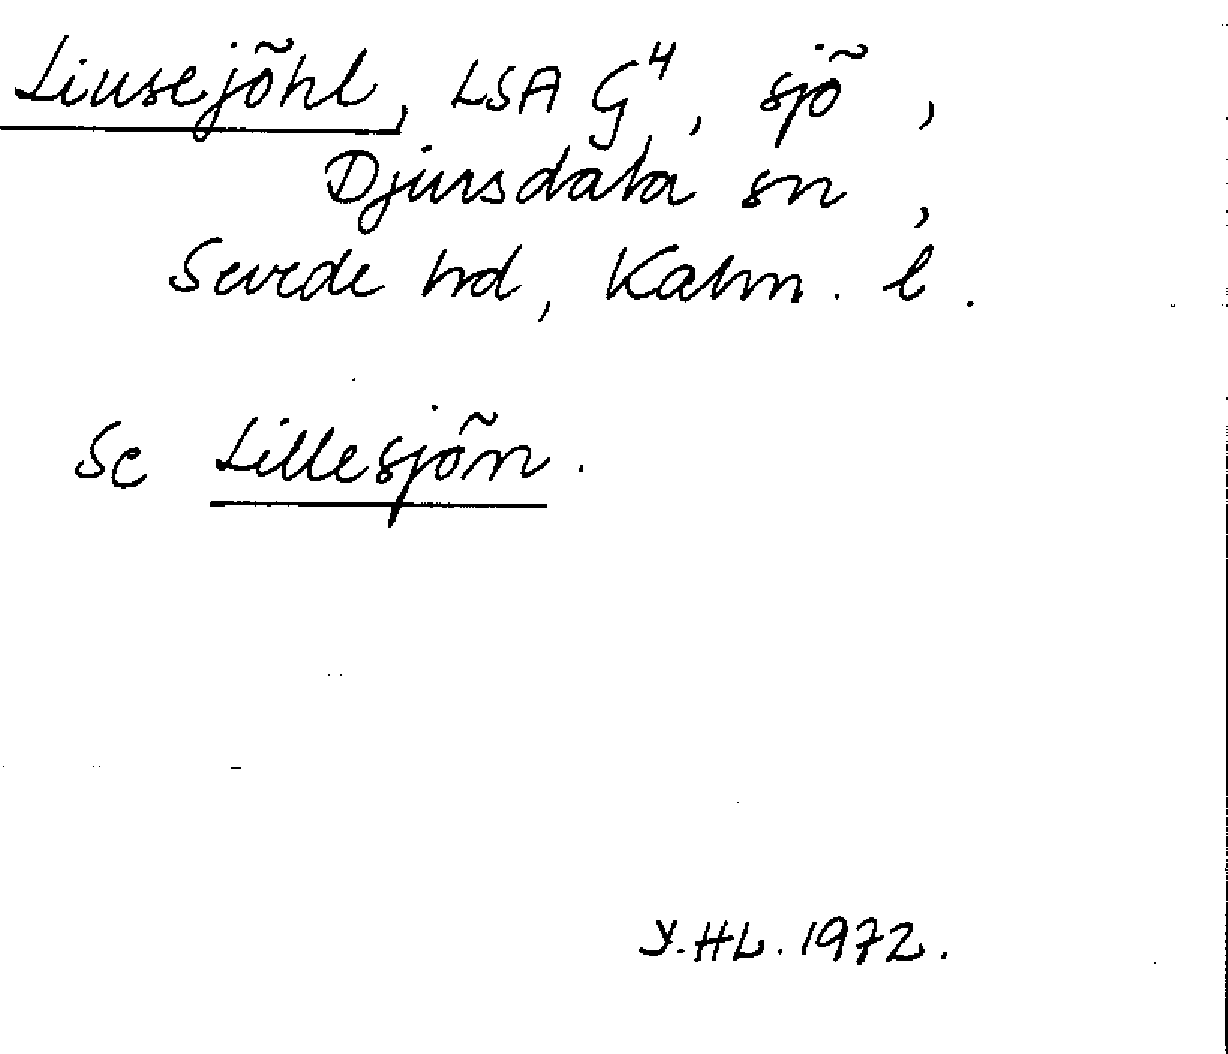 Liusejöhl, LSA G4, sjö,
Djursdala sn,
Sevede hd, Kalm. l.
Se Lillesjön.
Y.HL. 1972.